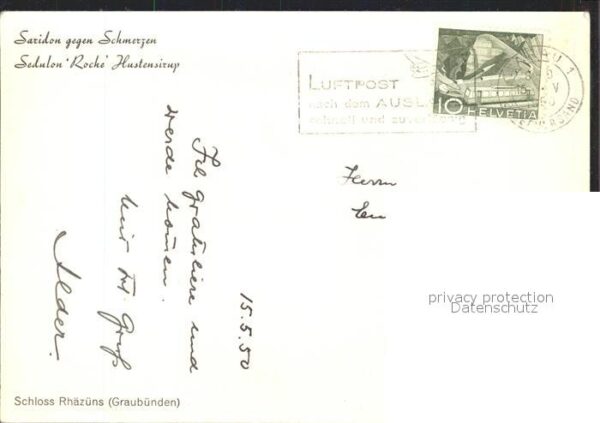 Saridon gegen Schmerzen
Sedulon 'Roche' Hustensirup
LUFTPOST
nach dem AUSL
schnell und zuverlässig
10 HELVETIA
Herrn
15.5.50
Ich gratuliere und
werde kommen.
Mit frdl Gruß
Alder.
privacy protection
Datenschutz
Schloss Rhäzüns (Graubünden)